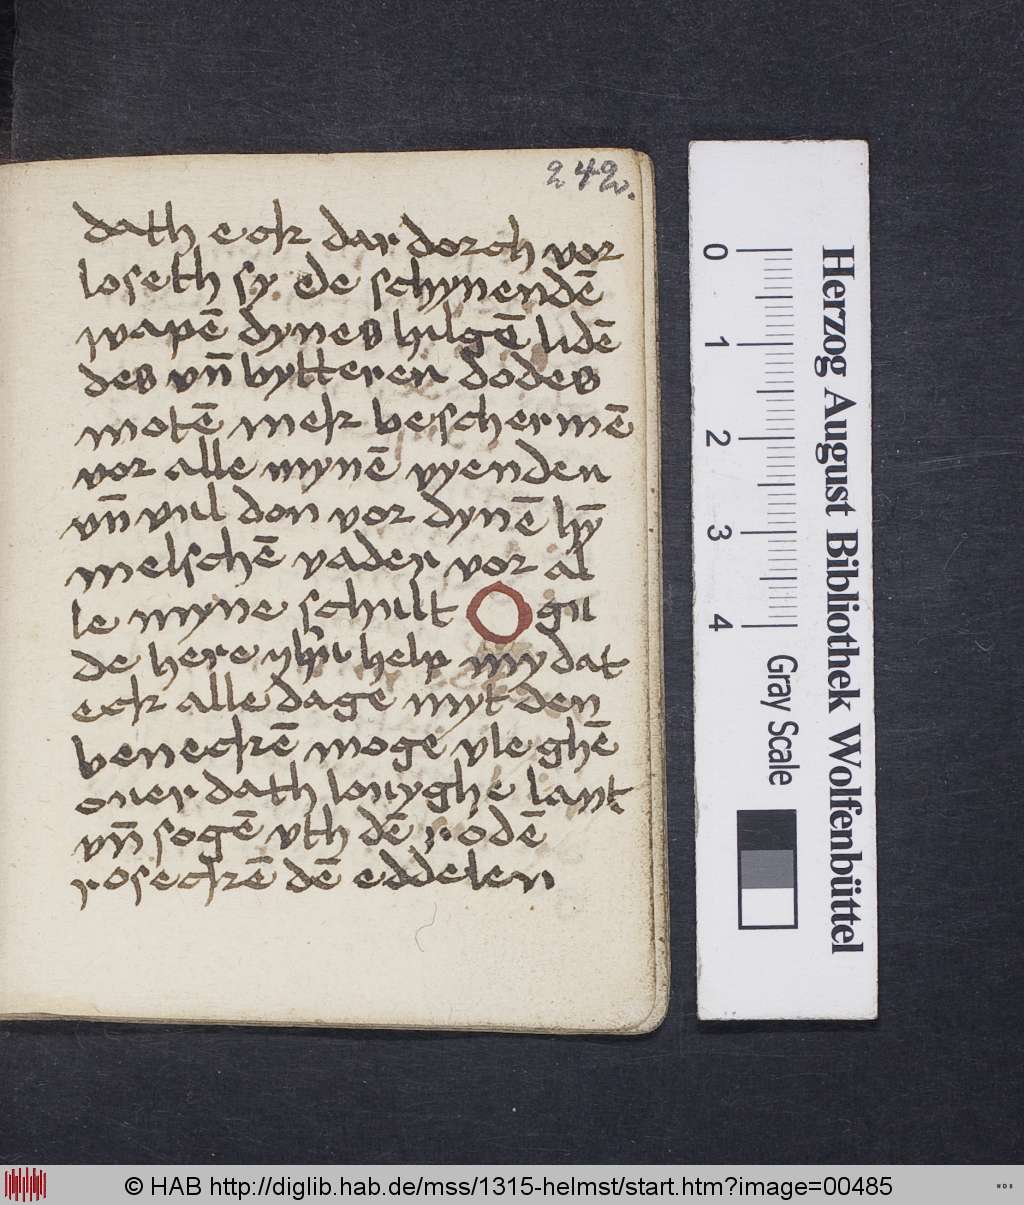 242.
dath eck dar dorch vor
loseth sy. de schynendē
wapē dynes hilgē lidē
des vn̄ bytteren dodes
motē mek beschermē
vor alle mynē vyenden
vn̄ vul don vor dynē hȳ
melschē vader vor al
le myne schult O gu
de here ihū help my dat
eck alle dage myt den
beneckē moge vleghē
ouer dath louyghe lant
vn̄ sogē vth dē rodē
roseckē dē eddelen
0
1
2
3
4
Gray Scale
Herzog August Bibliothek Wolfenbüttel
© HAB http://diglib.hab.de/mss/1315-helmst/start.htm?image=00485